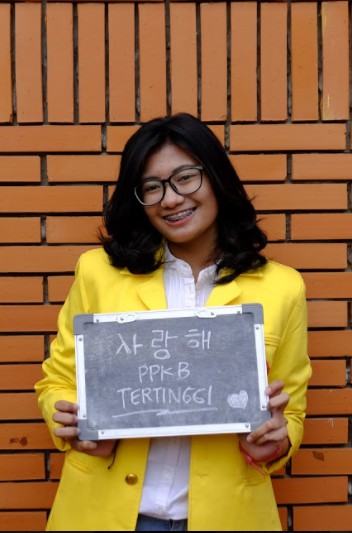 사랑해
PPKB
TERTINGGI